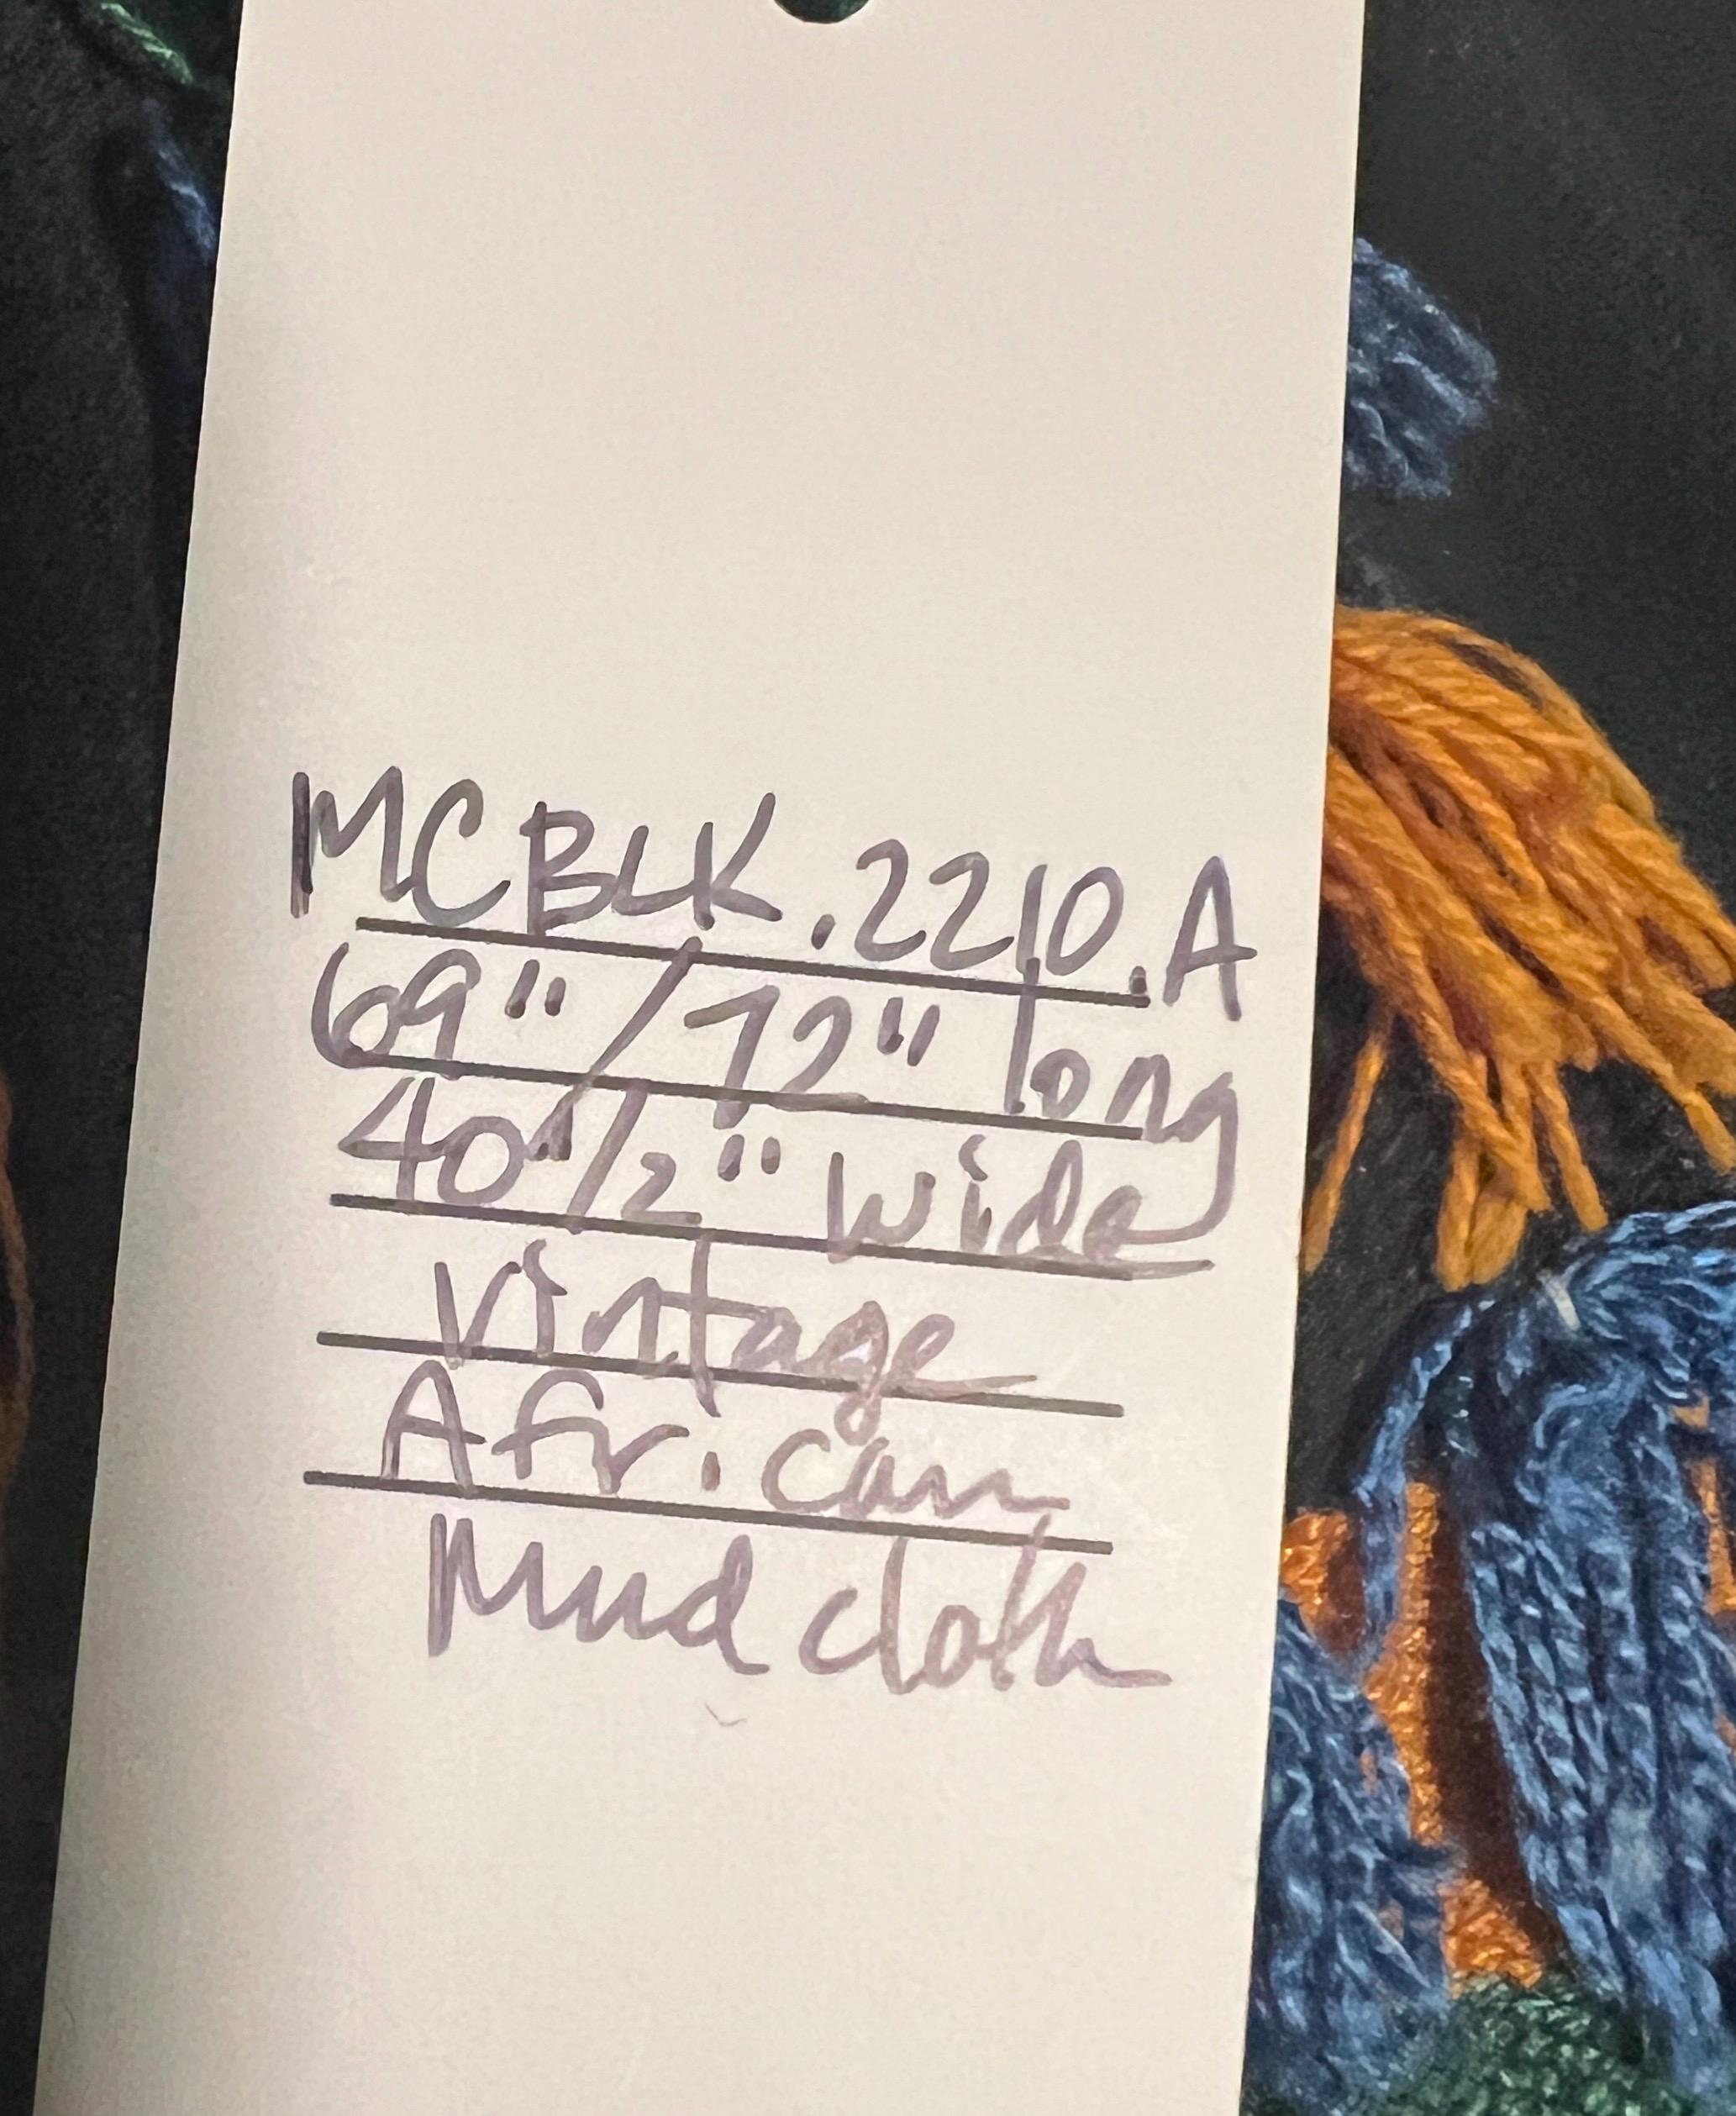 MCBLK.2210.A
69"/72" long
40"1/2" wide
Vintage
African
Mud cloth